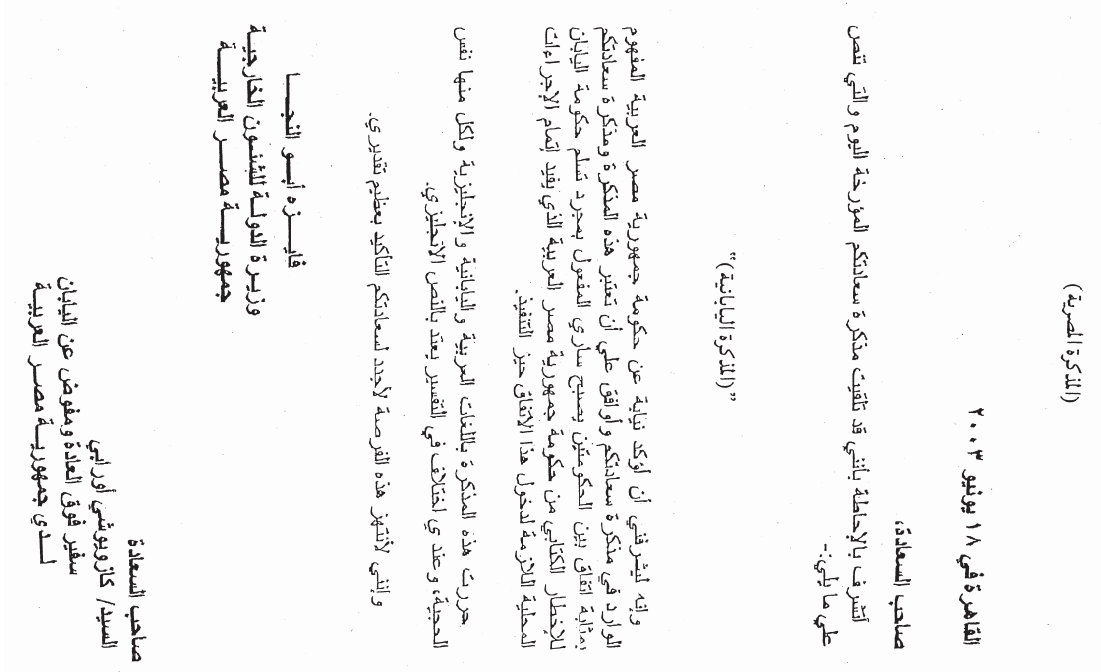 (المذكرة المصرية)
القاهرة في ١٨ يونيو ٢٠٠٣
صاحب السعادة،
أتشرف بالإحاطة بأنني قد تلقيت مذكرة سعادتكم المؤرخة اليوم والتي تنص
علي ما يلي:-
"(المذكرة اليابانية)"
وإنه ليشرفني أن أؤكد نيابة عن حكومة جمهورية مصر العربية المفهوم
الوارد في مذكرة سعادتكم وأوافق علي أن تعتبر هذه المذكرة ومذكرة سعادتكم
بمثابة اتفاق بين الحكومتين يصبح ساري المفعول بمجرد تسلم حكومة اليابان
للإخطار الكتابي من حكومة جمهورية مصر العربية الذي يفيد إتمام الإجراءات
المحلية اللازمة لدخول هذا الاتفاق حيز التنفيذ.
حررت هذه المذكرة باللغات العربية واليابانية والإنجليزية ولكل منها نفس
الحجية، وعند ي اختلاف في التفسير يعتد بالنص الانجليزي.
وإنني لأنتهز هذه الفرصة لأجدد لسعادتكم التأكيد بعظيم تقديري.
فايـــزه أبـــو النجـــا
وزيـرة الدولـة للشئـون الخارجيـة
جمهوريـــة مصـــر العربيـــة
صاحب السعادة
السيد/ كازويوشي أورابي
سفير فوق العادة ومفوض عن اليابان
لـــدي جمهوريـــة مصـــر العربيـــة